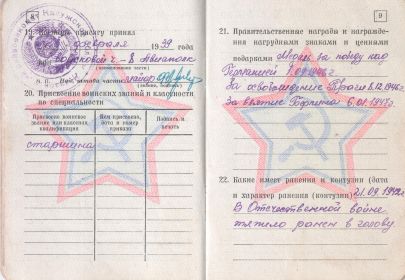 8
19. Военную присягу принял
февраля 1939
войсковой ч-
(наименование части)
М. П. Нач. штаба части майор
(звание, подпись)
20. Присвоение воинских званий и классности
по специальности
Присвоено воинское звание или классная квалификация
Кем присвоено, дата и номер приказа
Подпись и печать
старшина
9
21. Правительственные награды и награждения нагрудными знаками и ценными
подарками Медаль за победу над
Германией 9.09.1946 г.
За освобождение Праги 8.12.1946 г.
За взятие Берлина 6.01.1947 г.
22. Какие имеет ранения и контузии (дата
и характер ранения (контузии) 21.09.1942 г.
В Отечественной войне
тяжело ранен в голову.